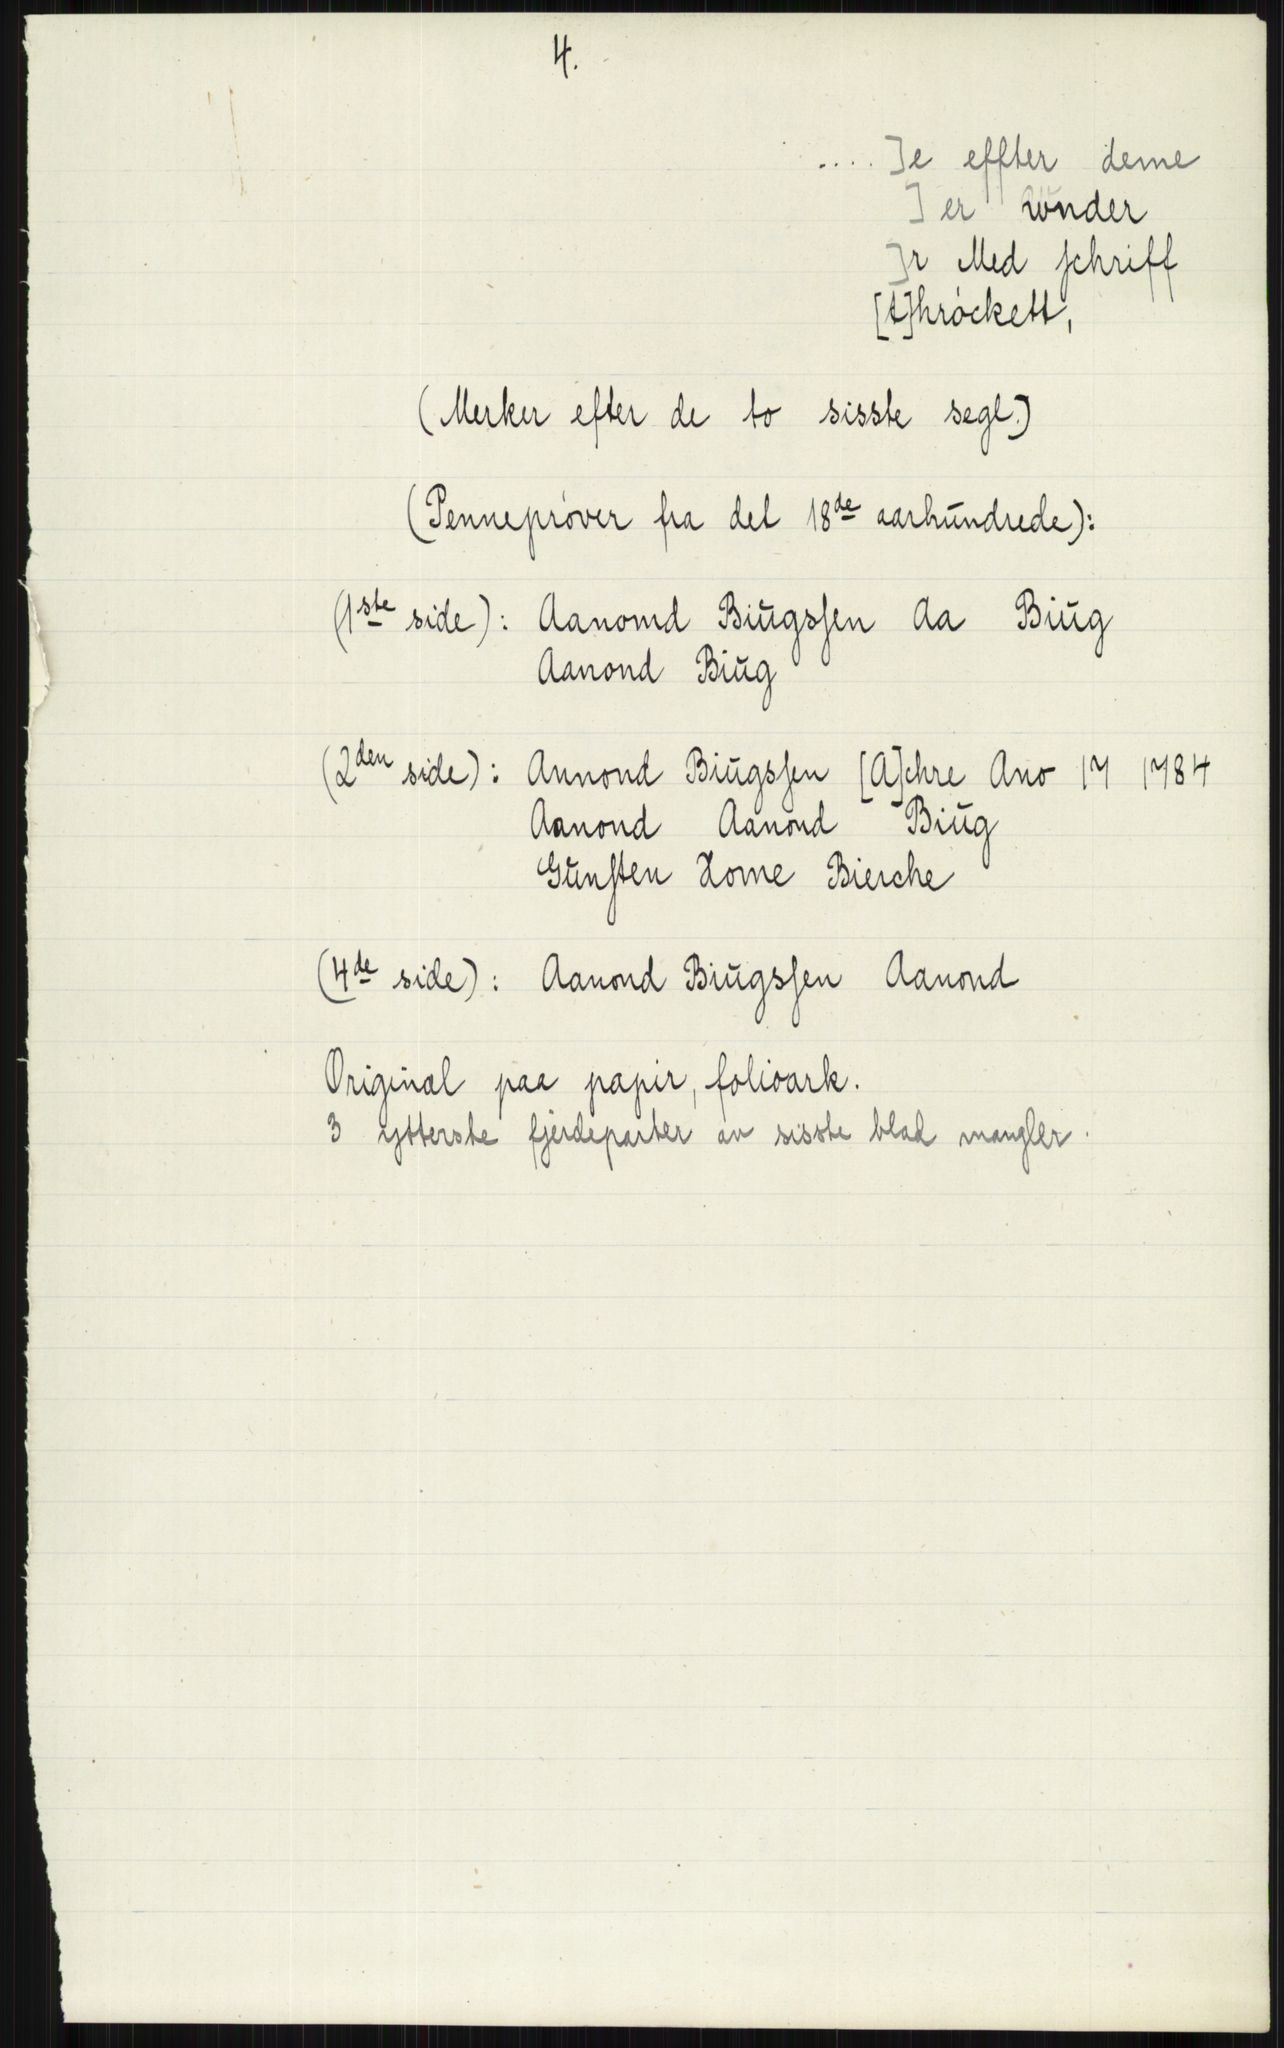 4.
.... ]e effter deme
] er wnder
]r Med schriff
[t]hröckett,
(Merker efter de to sisste segl.)
(Penneprøver fra det 18de aarhundrede):
(1ste side): Aanomd Biŭgssen Aa Biŭg
Aanond Biŭg
(2den side): Annond Biŭgssen [A]chre Ano 17 1784
Aanond Aanond Biŭg
Gŭnsten Home Bierche
(4de side): Aanond Biŭgssen Aanond
Original paa papir, folioark.
3 ytterste fjerdeparter av sisste blad mangler.